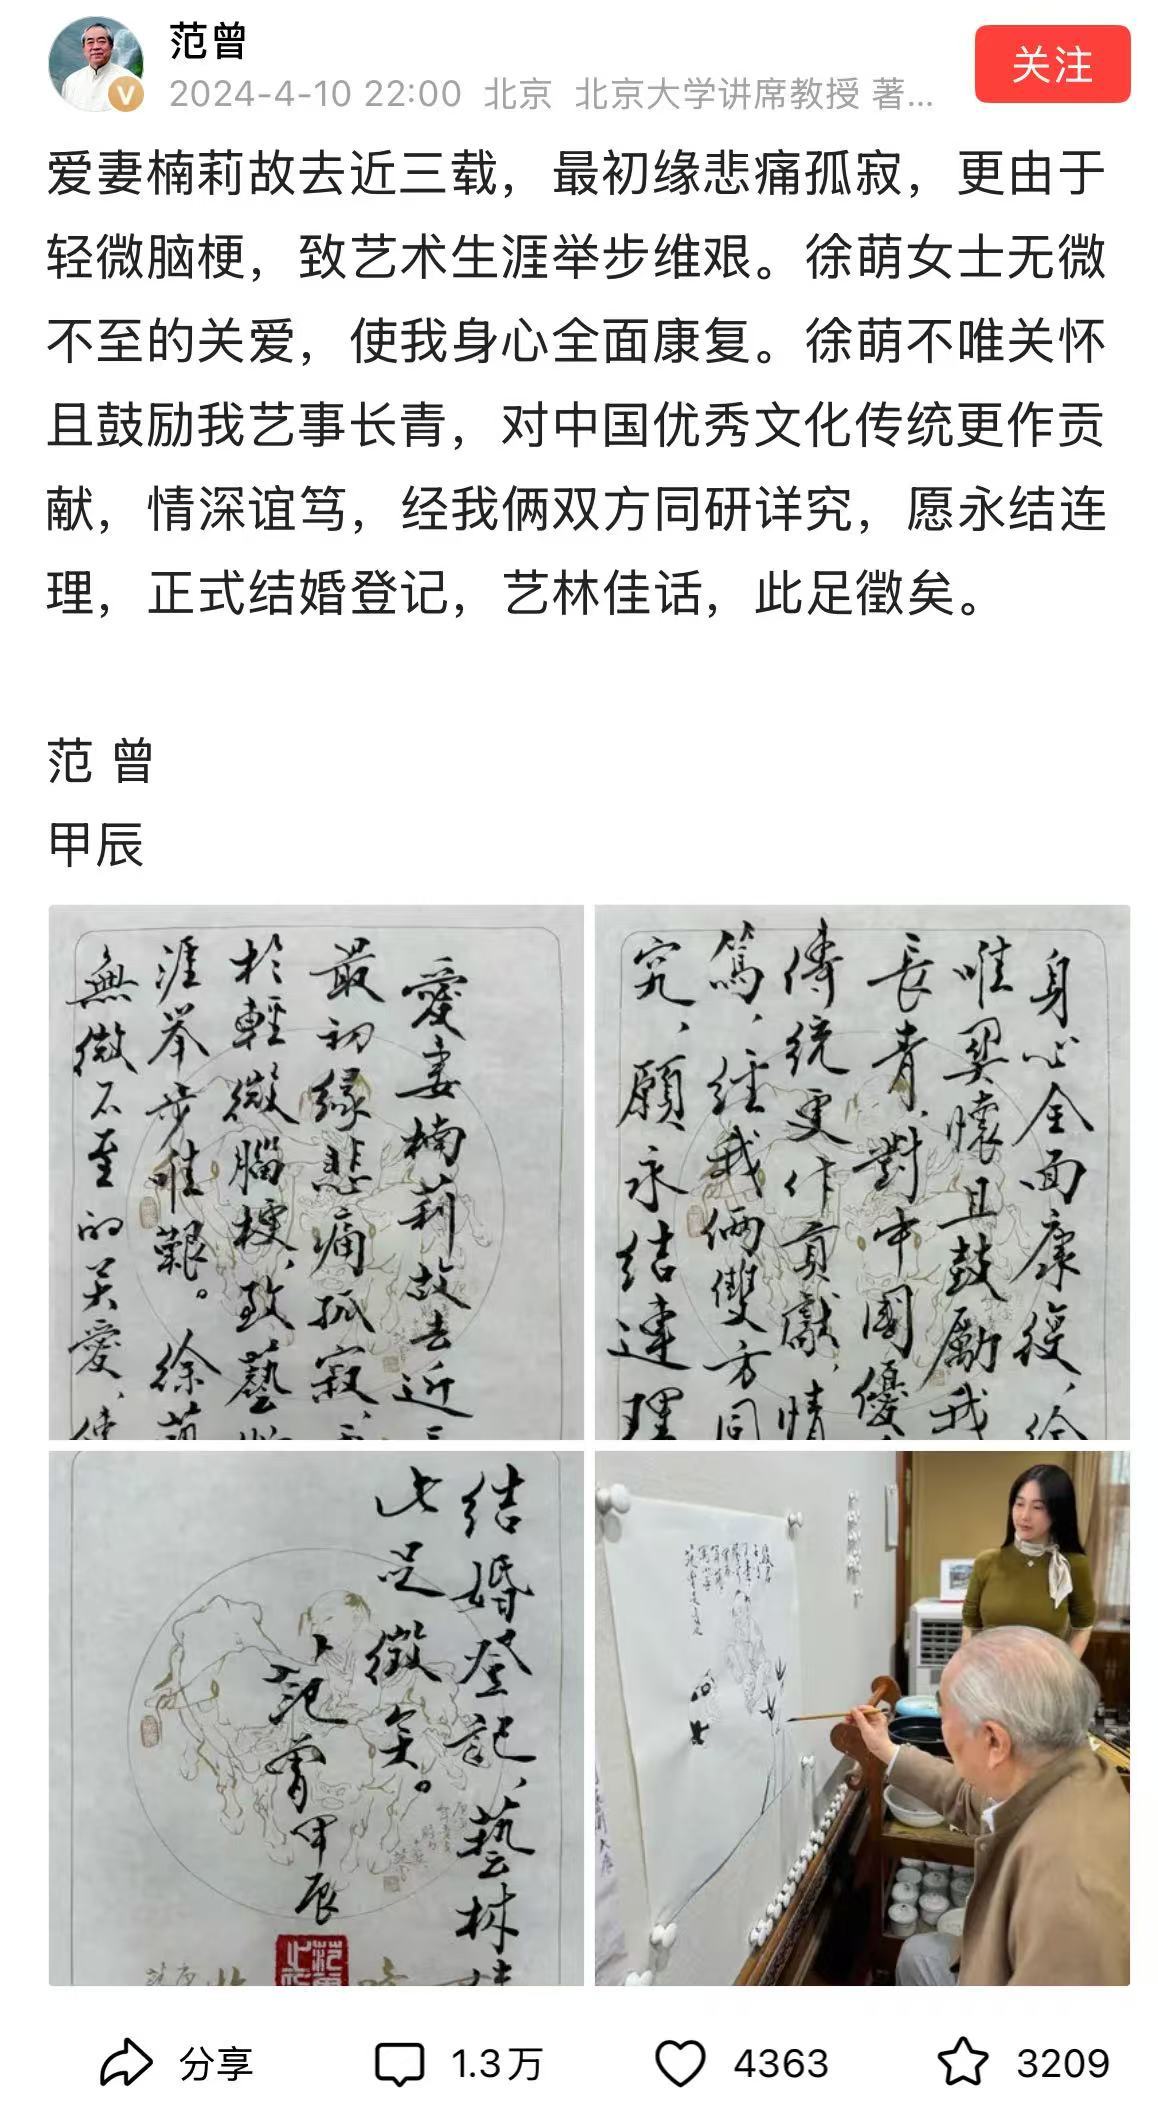 范曾
关注
2024-4-10 22:00 北京 北京大学讲席教授 著...
爱妻楠莉故去近三载，最初缘悲痛孤寂，更由于
轻微脑梗，致艺术生涯举步维艰。徐萌女士无微
不至的关爱，使我身心全面康复。徐萌不唯关怀
且鼓励我艺事长青，对中国优秀文化传统更作贡
献，情深谊笃，经我俩双方同研详究，愿永结连
理，正式结婚登记，艺林佳话，此足徵矣。
范 曾
甲辰
愛妻楠莉故去近三
最初緣悲痛孤寂，
於輕微腦梗，致藝
涯举步唯艱。徐萌
無微不至的关愛，使
身心全面康復，徐
唯關懷且鼓勵我
長青，對中國優
傳統更作貢獻，情
篤，經我俩雙方同
究，願永结連理
结婚登記，藝林佳
此足徵矣。
范曾甲辰
分享
1.3万
4363
3209